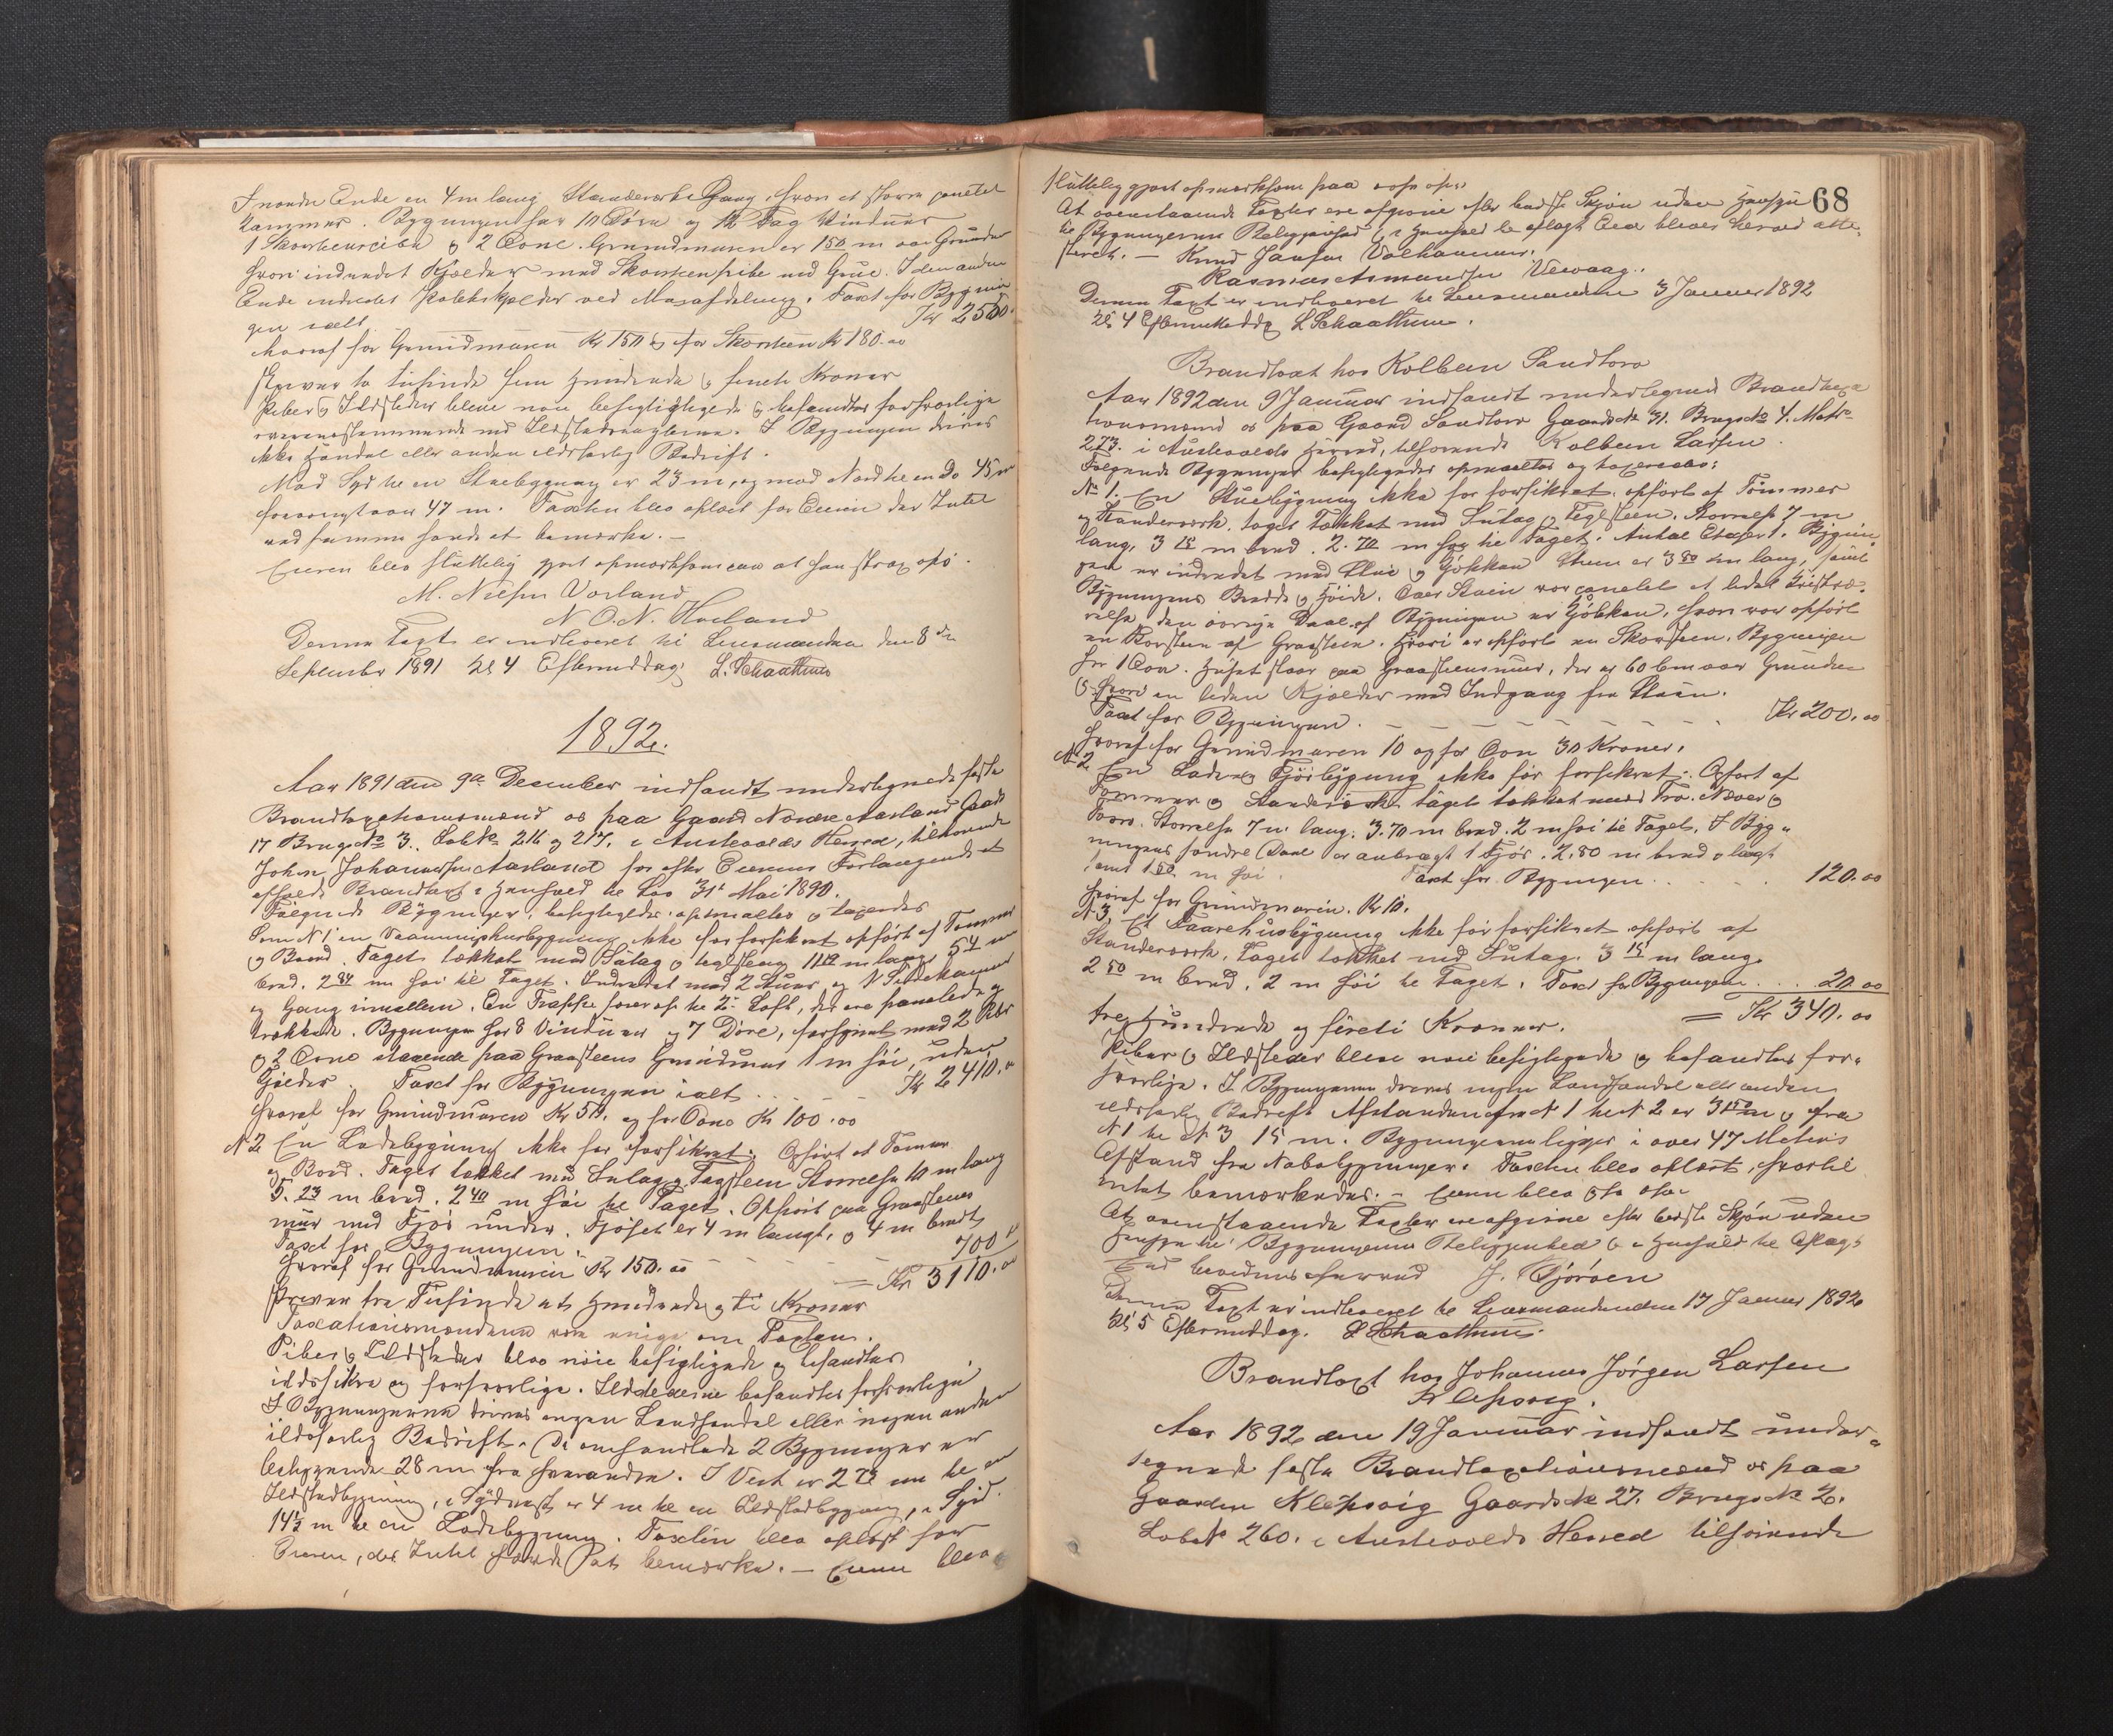 I nordre Ende en 4 m lang Standerverks Gang, hvori et større panelet
Kammer. Bygningen har 10 Döra og 12 Fag Vinduer
1 Skorsteenspibe og 2 Ovne. Grundmuren er 150 m over Grunden
hvori indredet Kjælder med Skorstenspibe med Grue. I den anden
Ende indredet Kjælder ved Muraf­deling. Taxt for Bygnin
gen ialt Kr 2550
hvoraf for Grundmuren Kr 150 og for Skorsteen Kr 180.00
skriver to tusinde fem hundrede og femti Kroner
Piber og Ildsteder bleve nøie besigtigede og befandtes forsvarlige
overensstemmende med Ildstedsreglerne. I Bygningen drives
ikke Handel eller anden ildsfarlig Bedrift.
Mod Syd til en Stuebygning er 23 m, og mod Nord til en Do 45 m
forøvrigt over 47 m. Taxten blev oplæst for Eieren der Intet
ved samme havde at bemærke. —
Eieren blev sluttelig gjort opmærksom paa at han strax osv.
M. Nilsen Vorland
N. O. N. Hovland
Denne Taxt er indleveret til Lensmanden den 8de
September 1891 Kl 4 Eftermiddag L. Schaathun
1892.
Aar 1891 den 9de Desember indfandt undertegnede faste
Brandtaxationsmænd os paa Gaard Nordre Aarland Gaards
17 Brugs No 3. Løbe No 216 og 217. i Austevolds Herred, tilhørende
John Johannessen Aarland for efter Eierens Forlangende at
afholde Brandtaxt i Henhold til Lov 31te Mai 1890.
Følgende Bygninger besigtigedes opmaaltes og taxeredes
Som N 1 en Vaaningshusbygning ikke før forsikret opført af Tømmer
og Bord. Taget tækket med Sutag og teglsteen 11 m langt 5 m
bred. 2 84 m høi til Taget. Indredet med 2 Stuer, og 1 Sidekammer
og Gang imellem. En Trappe fører op til 2det Loft, der ere panelede og
trækket. Bygningen har 8 Vinduer og 7 Döre, forsynet med 2 Piber
og 2 Ovne staaende paa Graasteens Grundmur 1 m høi, uden
Kjelder. Taxt for Bygningen ialt Kr 2410.00
hvoraf for Grundmuren Kr 50. og for Ovne Kr 100.00
N 2 En Ladebygning ikke før forsikret. Opført af Tømmer
og Bord. Taget tækket med Sutag og Tagsteen Størrelse 10 m lang
5. 23 m bred. 2 40 m høi til Taget. Opført paa Graasteens
mur med Fjøs under. Fjøset er 4 m langt, og 4 m bredt
Taxt for Bygningen 700
hvoraf for Grundmuren Kr 150.00 = Kr 3110.00
skriver tre Tusinde et hundrede og ti Kroner
Taxationsmændene vare enige om Taxten.
Piber og Ildsteder blev nøie besigtigede og befandtes
ildssikre og forsvarlige. Ildstederne befandtes forsvarlige
I Bygningerne drives ingen Landhandel eller nogen anden
ildsfarlig Bedrift. De omhandlede 2 Bygninger er
beliggende 28 m fra hverandre. I Vest er 2 73 m til en
Ildstedbygning, i Sydvest er 4 m til en Ildstedbygning, i Syd
14½ m til en Ladebygning. Taxten blev oplæst for
Eieren, der Intet havde at bemærke. — Eieren blev
68
sluttelig gjort opmærksom paa osv osv.
At ovenstaaende Taxter ere afgivne efter bedste Skjøn uden Hensyn
til Bygningernes Beliggenhed og i Henhold til aflagt Eed bliver herved atte-
steret. — Knud Jansen Volhammer.
Rasmus Asmundsen Vewaag.
Denne Taxt er indleveret til Lensmanden 3 Januar 1892
Kl 4 Eftermiddag L Schaathun.
Brandtaxt hos Kolbein Sandtorv
Aar 1892 den 9 Januar indfandt undertegnede Brandtaxa
tionsmænd os paa Gaard Sandtorv Gaards No 31. Brugs No 4. Matr-
273. i Austevolds Herred, tilhørende Kolbein Larsen.
Følgende Bygninger besigtigedes opmaaltes og taxeredes:
No 1. En Stuebygning ikke før forsikret. opført af Tömmer
og Standerverk. taget Tækket med Sutag og Teglsteen. Størrelse 7 m
lang, 3 15 m bred. 2. 70 m høi til Taget. Antal Etager 1. Bygnin
gen er indredet med Stue og Kjökken Stuen er 3 80 m lang, samt
Bygningens Bredde og Høide. Over Stuen var panelet et lidet
den øvrige Deel af Bygningen er Kjökken, hvori var opført
en Rorsteen af Graasteen. Hvori er opført en Skorsteen. Bygningen
har 1 Ovn. Huset staar paa Graasteensmuur, der er 60 Cm over Grunden
og hvori en liden Kjælder med Indgang fra Stuen.
Taxt for Bygningen. Kr 200.00
hvoraf for Grundmuren 10 og for Ovn 30 Kroner.
N 2 En Lade og Fjösbygning ikke før forsikret. Opført af
Tømmer og Standerverk. taget tækket med Træ. Næver og
Torv. Størrelse 7 m lang. 3.70 m bred. 2 m høi til Taget. I Byg-
ningens søndre Deel er anbragt 1 Fjös. 2.80 m bred og langt
samt 1 50 m høi. Taxt for Bygningen 120.00
hvoraf for Grundmuren. Kr 10.
N 3. Et Faarehusbygning ikke før forsikret opført af
Standerverk. Taget tækket med Sutag. 3 15 m lang.
2 50 m bred. 2 m høi til Taget. Taxt for Bygningen 20.00
tre Hundrede og fireti Kroner. = Kr 340.00
Piber og Ildsteder bleve nøie besigtigede og befandtes for-
svarlige. I Bygningerne drives ingen Landhandel eller anden
ildsfarlig Bedrift Afstanden fra N 1 til N 2 er 3 50 m og fra
N 1 til N 3 15 m. Bygningerne ligger i over 47 Meters
Afstand fra Nabobygninger. Taxten blev oplæst, hvortil
intet bemærkedes. — Eieren blev osv osv.
At ovenstaaende Taxter ere afgivne efter bedste Skjøn uden
Hensyn til Bygningernes Beliggenhed og i Henhold til Aflagt
Eed bevidnes herved J. Bjøroen
Denne Taxt er indleveret til Lensmanden den 17 Januar 1892
Kl 5 Eftermiddag. L Schaathun.
Brandtaxt hos Johannes Jørgen Larsen
Klepsvig.
Aar 1892 den 19 Januar indfandt under-
tegnede faste Brandtaxationsmænd os paa
Gaarden Klepsvig Gaards No 27. Brugs No 2.
Løbe No 260. i Austevolds Herred tilhørende